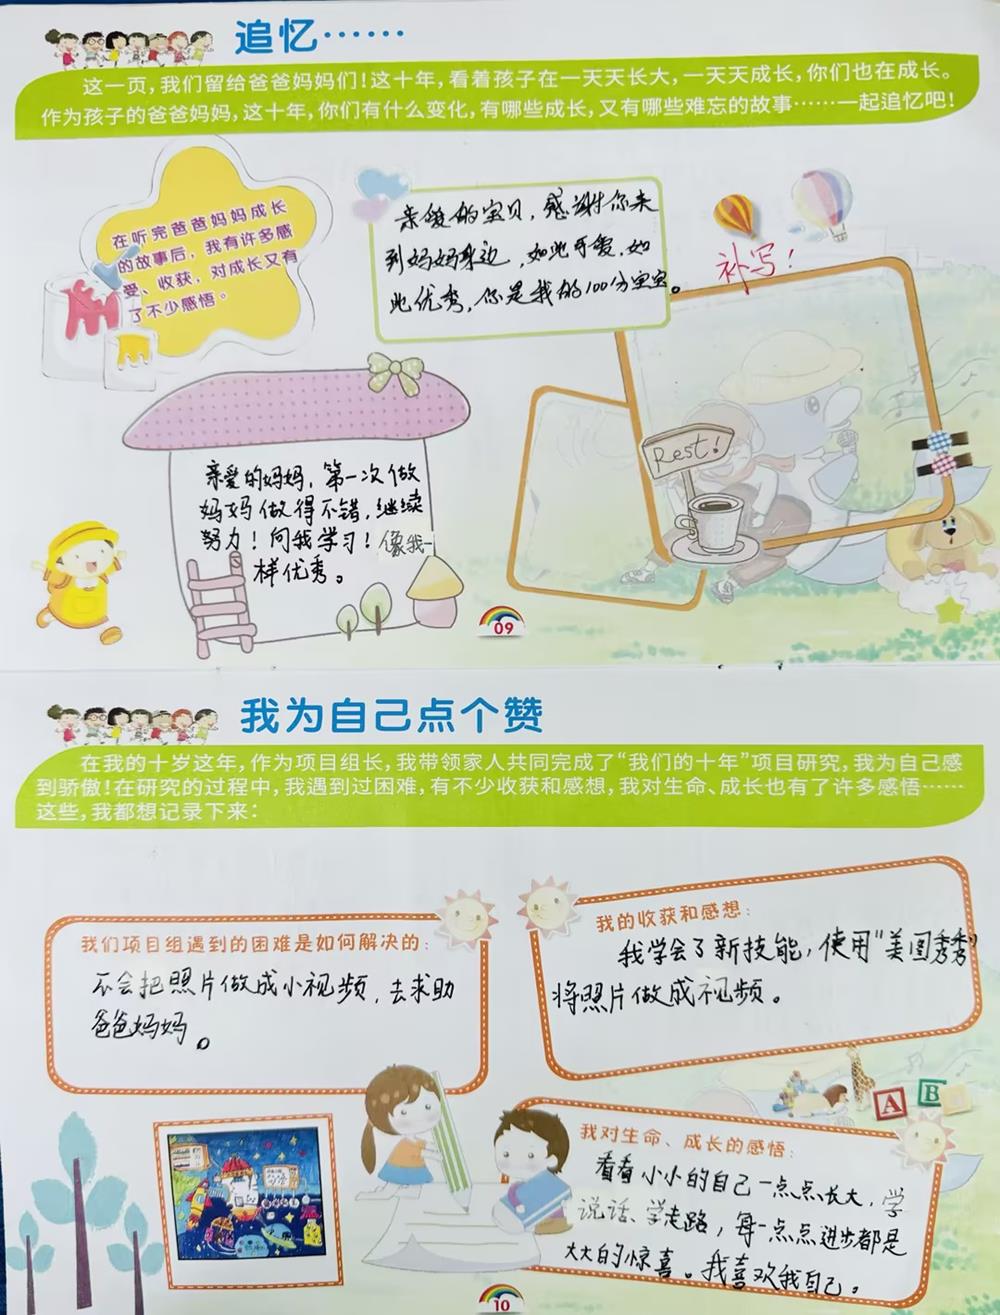 追忆······
这一页，我们留给爸爸妈妈们！这十年，看着孩子在一天天长大，一天天成长，你们也在成长。
作为孩子的爸爸妈妈，这十年，你们有什么变化，有哪些成长，又有哪些难忘的故事······一起追忆吧！
在听完爸爸妈妈成长
的故事后，我有许多感
受、收获，对成长又有
了不少感悟。
亲爱的宝贝，感谢你来
到妈妈身边，如此可爱，如
此优秀，你是我的100分宝宝。
补写！
Rest!
亲爱的妈妈，第一次做
妈妈做得不错，继续
努力！向我学习！像我一
样优秀。
09
我为自己点个赞
在我的十岁这年，作为项目组长，我带领家人共同完成了“我们的十年”项目研究，我为自己感
到骄傲！在研究的过程中，我遇到过困难，有不少收获和感想，我对生命、成长也有了许多感悟······
这些，我都想记录下来：
我们项目组遇到的困难是如何解决的：
不会把照片做成小视频，去求助
爸爸妈妈。
我的收获和感想：
我学会了新技能，使用“美图秀秀”
将照片做成视频。
A B
我对生命、成长的感悟：
看看小小的自己一点点长大，学
说话、学走路，每一点点进步都是
大大的惊喜。我喜欢我自己。
10